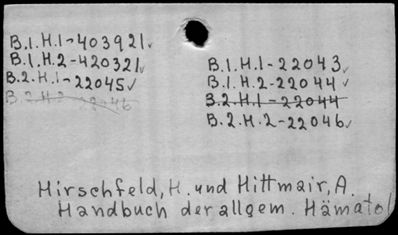 B.1.H.1-403921
B.1.H.2-420321
B.2.H.1-22045
B.2.H.2-22046
B.1.H.1-22043
B.1.H.2-22044
B.2.H.1-22044
B.2.H.2-22046
Hirschfeld, H. und Hittmair, A.
Handbuch der allgem. Hämatol